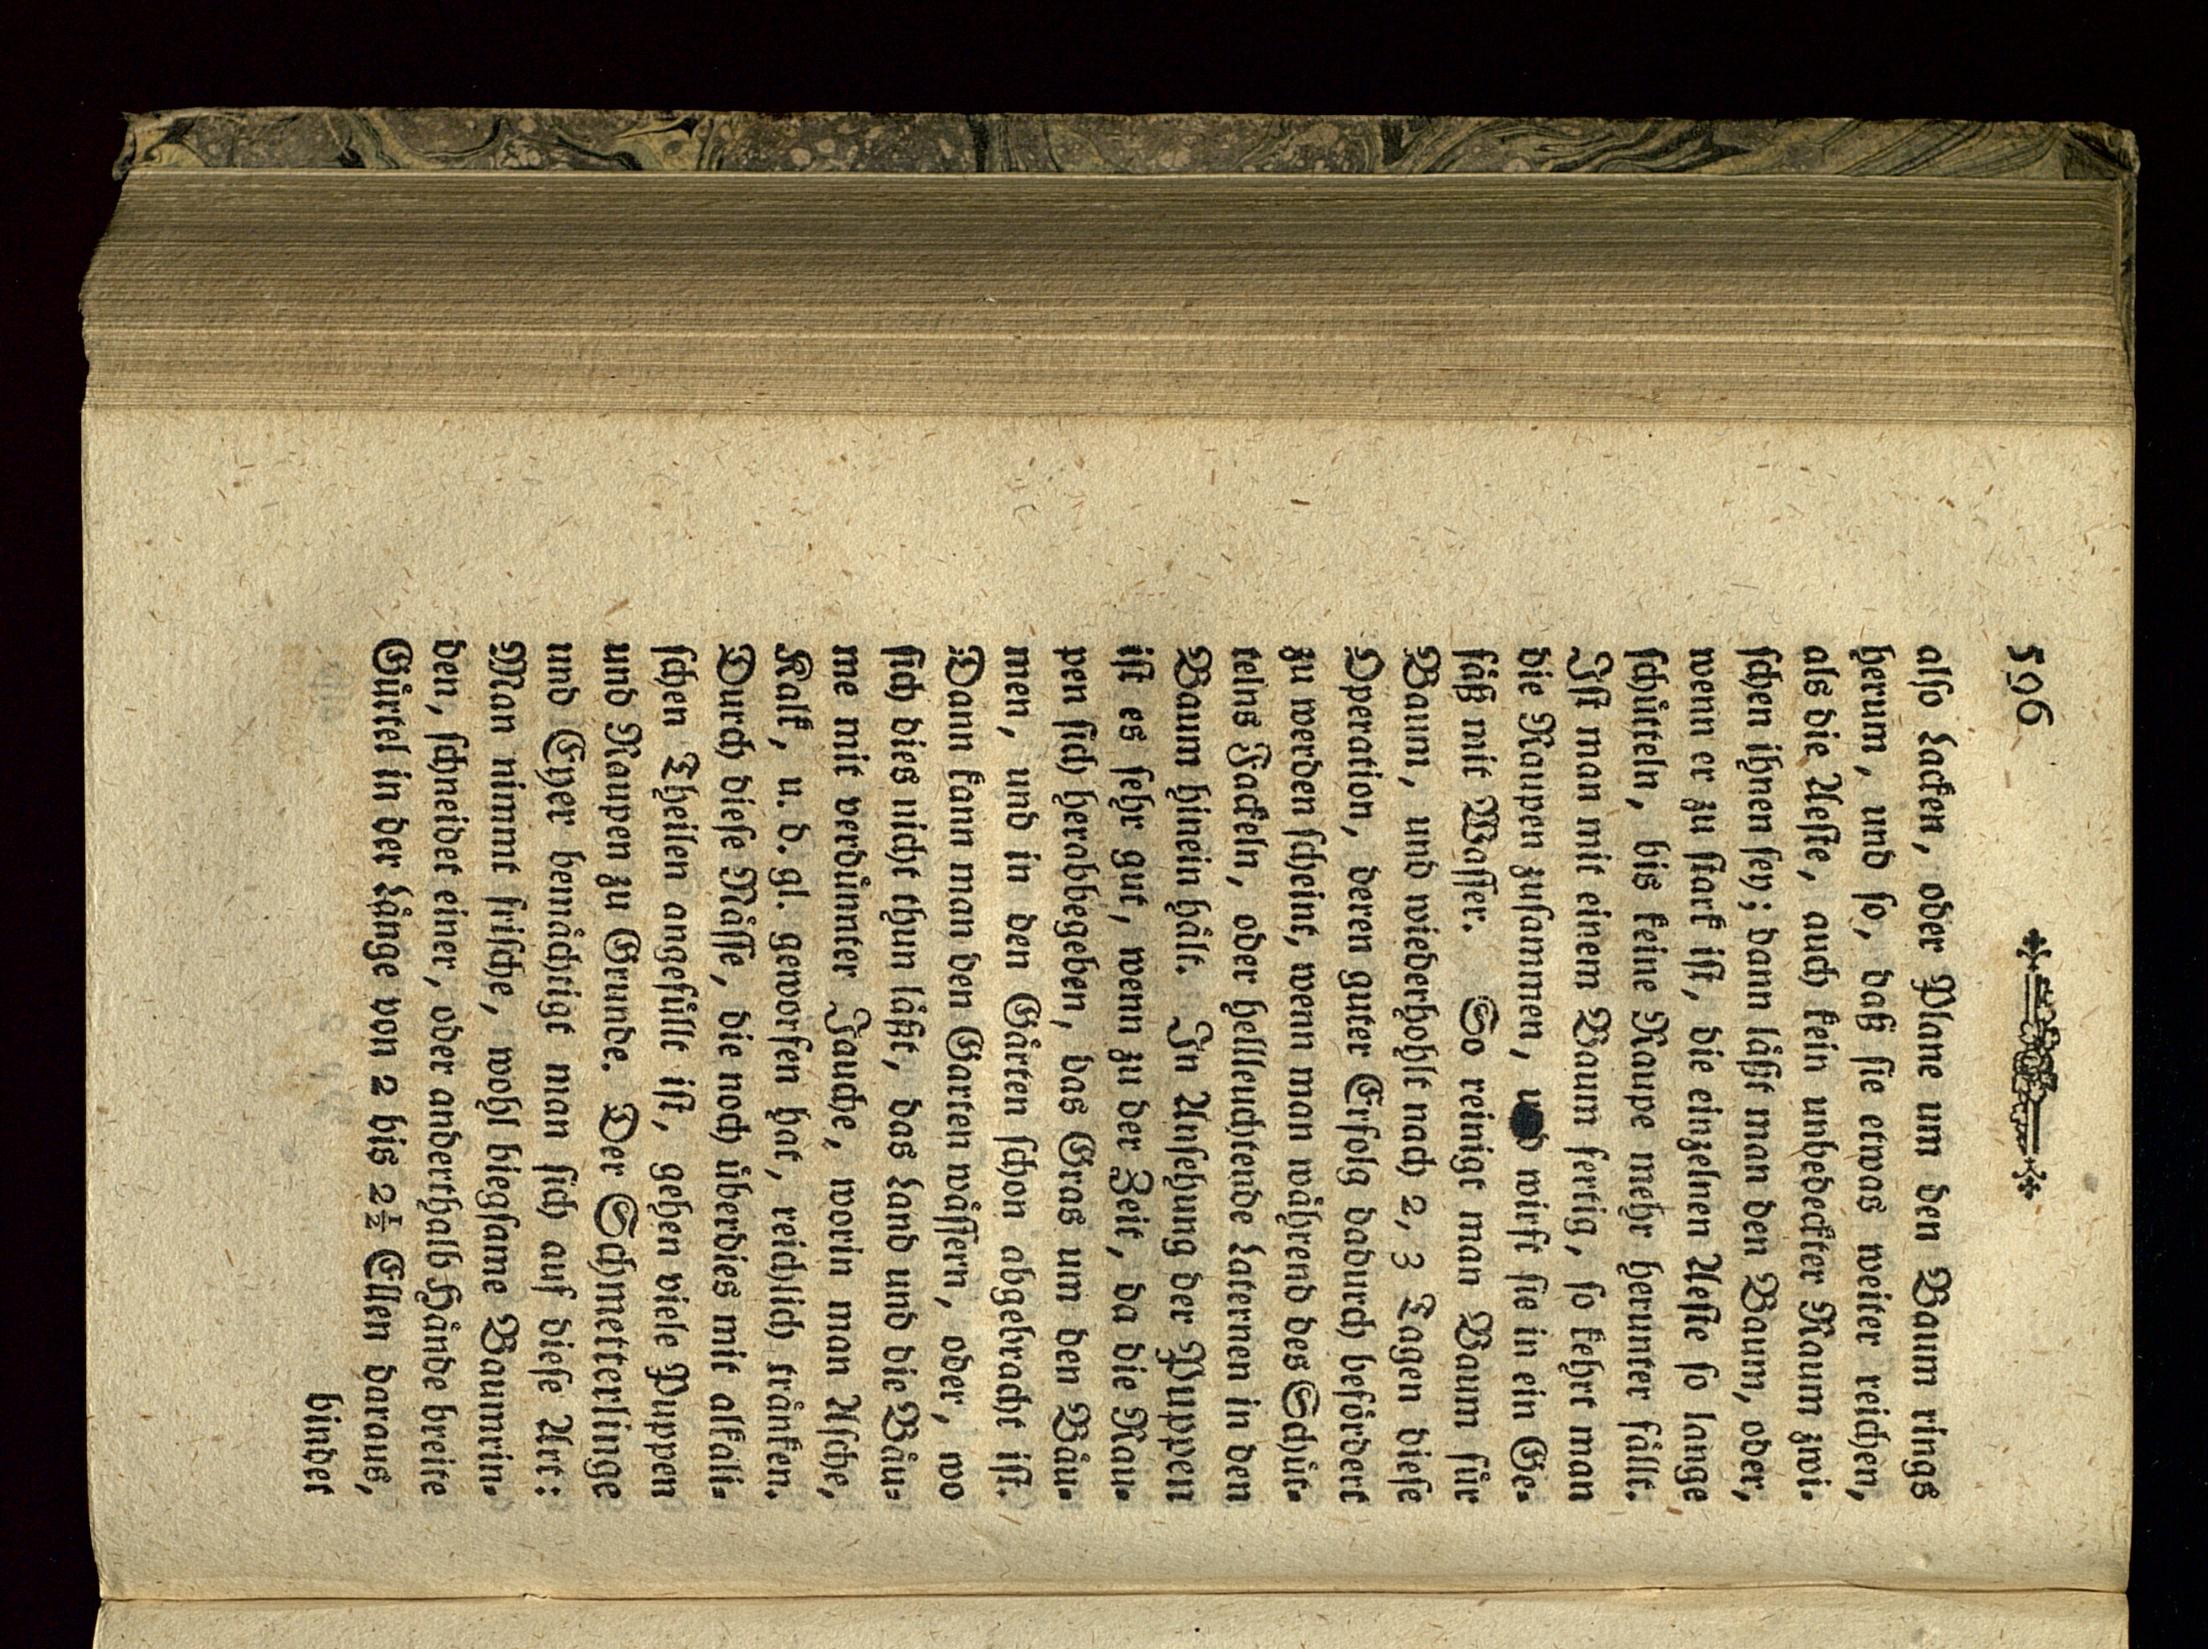 596
also Lacken, oder Plane um den Baum rings
herum, und so, daß sie etwas weiter reichen,
als die Aeste, auch kein unbedeckter Raum zwi-
schen ihnen sey; dann läßt man den Baum, oder,
wenn er zu stark ist, die einzelnen Aeste so lange
schütteln, bis keine Raupe mehr herunter fällt.
Ist man mit einem Baum fertig, so kehrt man
die Raupen zusammen, und wirft sie in ein Ge-
fäß mit Wasser. So reinigt man Baum für
Baum, und wiederhohlt nach 2, 3 Tagen diese
Operation, deren guter Erfolg dadurch befördert
zu werden scheint, wenn man während des Schüt-
telns Fackeln, oder hellleuchtende Laternen in den
Baum hinein hält. In Ansehung der Puppen
ist es sehr gut, wenn zu der Zeit, da die Rau-
pen sich herabbegeben, das Gras um den Bäu-
men, und in den Gärten schon abgebracht ist.
Dann kann man den Garten wässern, oder, wo
sich dies nicht thun läßt, das Land und die Bäu-
me mit verdünnter Jauche, worin man Asche,
Kalk, u. d. gl. geworfen hat, reichlich tränken.
Durch diese Mässe, die noch überdies mit alkali-
schen Theilen angefüllt ist, gehen viele Puppen
und Raupen zu Grunde. Der Schmetterlinge
und Eyer bemächtigt man sich auf diese Art:
Man nimmt frische, wohl biegsame Baumrin-
den, schneidet einer, oder anderthalb Hände breite
Gürtel in der Länge von 2 bis 2½ Ellen daraus,
bindet